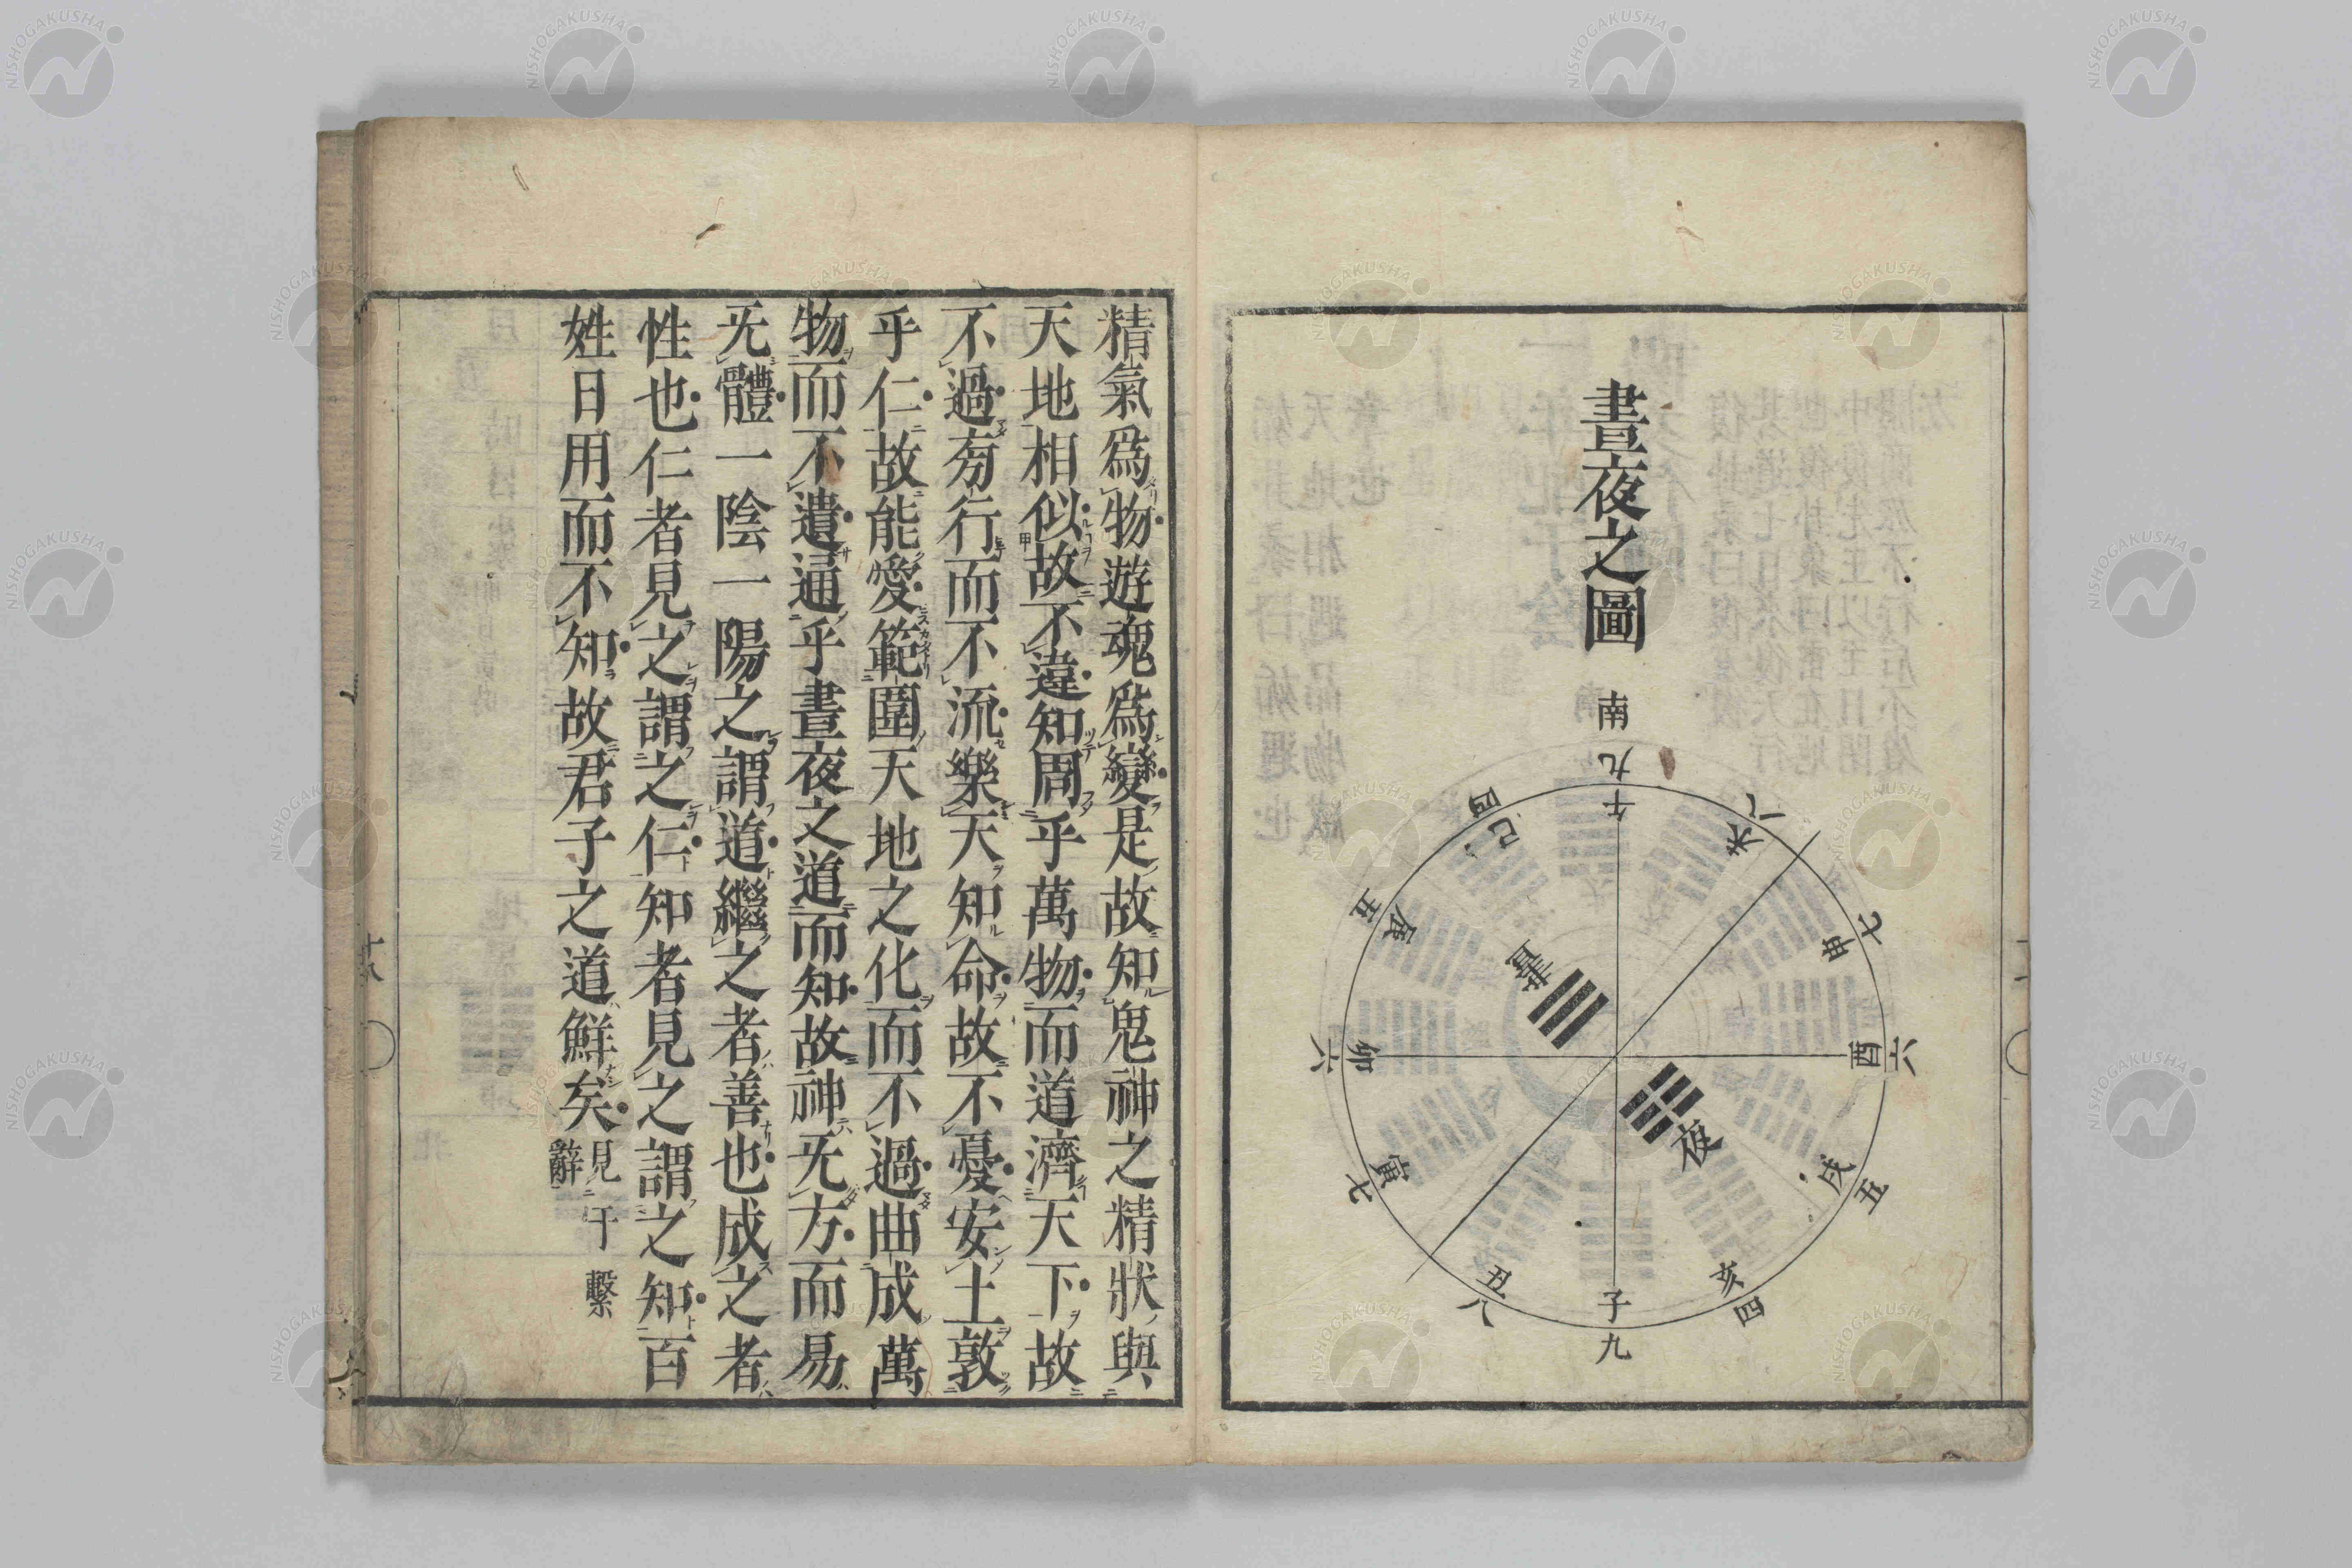 晝夜之圖
南
九
午
八
未
七
申
六
酉
五
戌
四
亥
九
子
八
丑
七
寅
六
卯
五
辰
四
巳
晝
夜
精氣爲物遊魂爲變是故知鬼神之精狀與
天地相似故不違知周乎萬物而道濟天下故
不過旁行而不流樂天知命故不憂安土敦
乎仁故能愛範圍天地之化而不過曲成萬
物而不遺通乎晝夜之道而知故神无方而易
无體一陰一陽之謂道繼之者善也成之者
性也仁者見之謂之仁知者見之謂之知百
姓日用而不知故君子之道鮮矣見于繫
辭
NISHOGAKUSHA